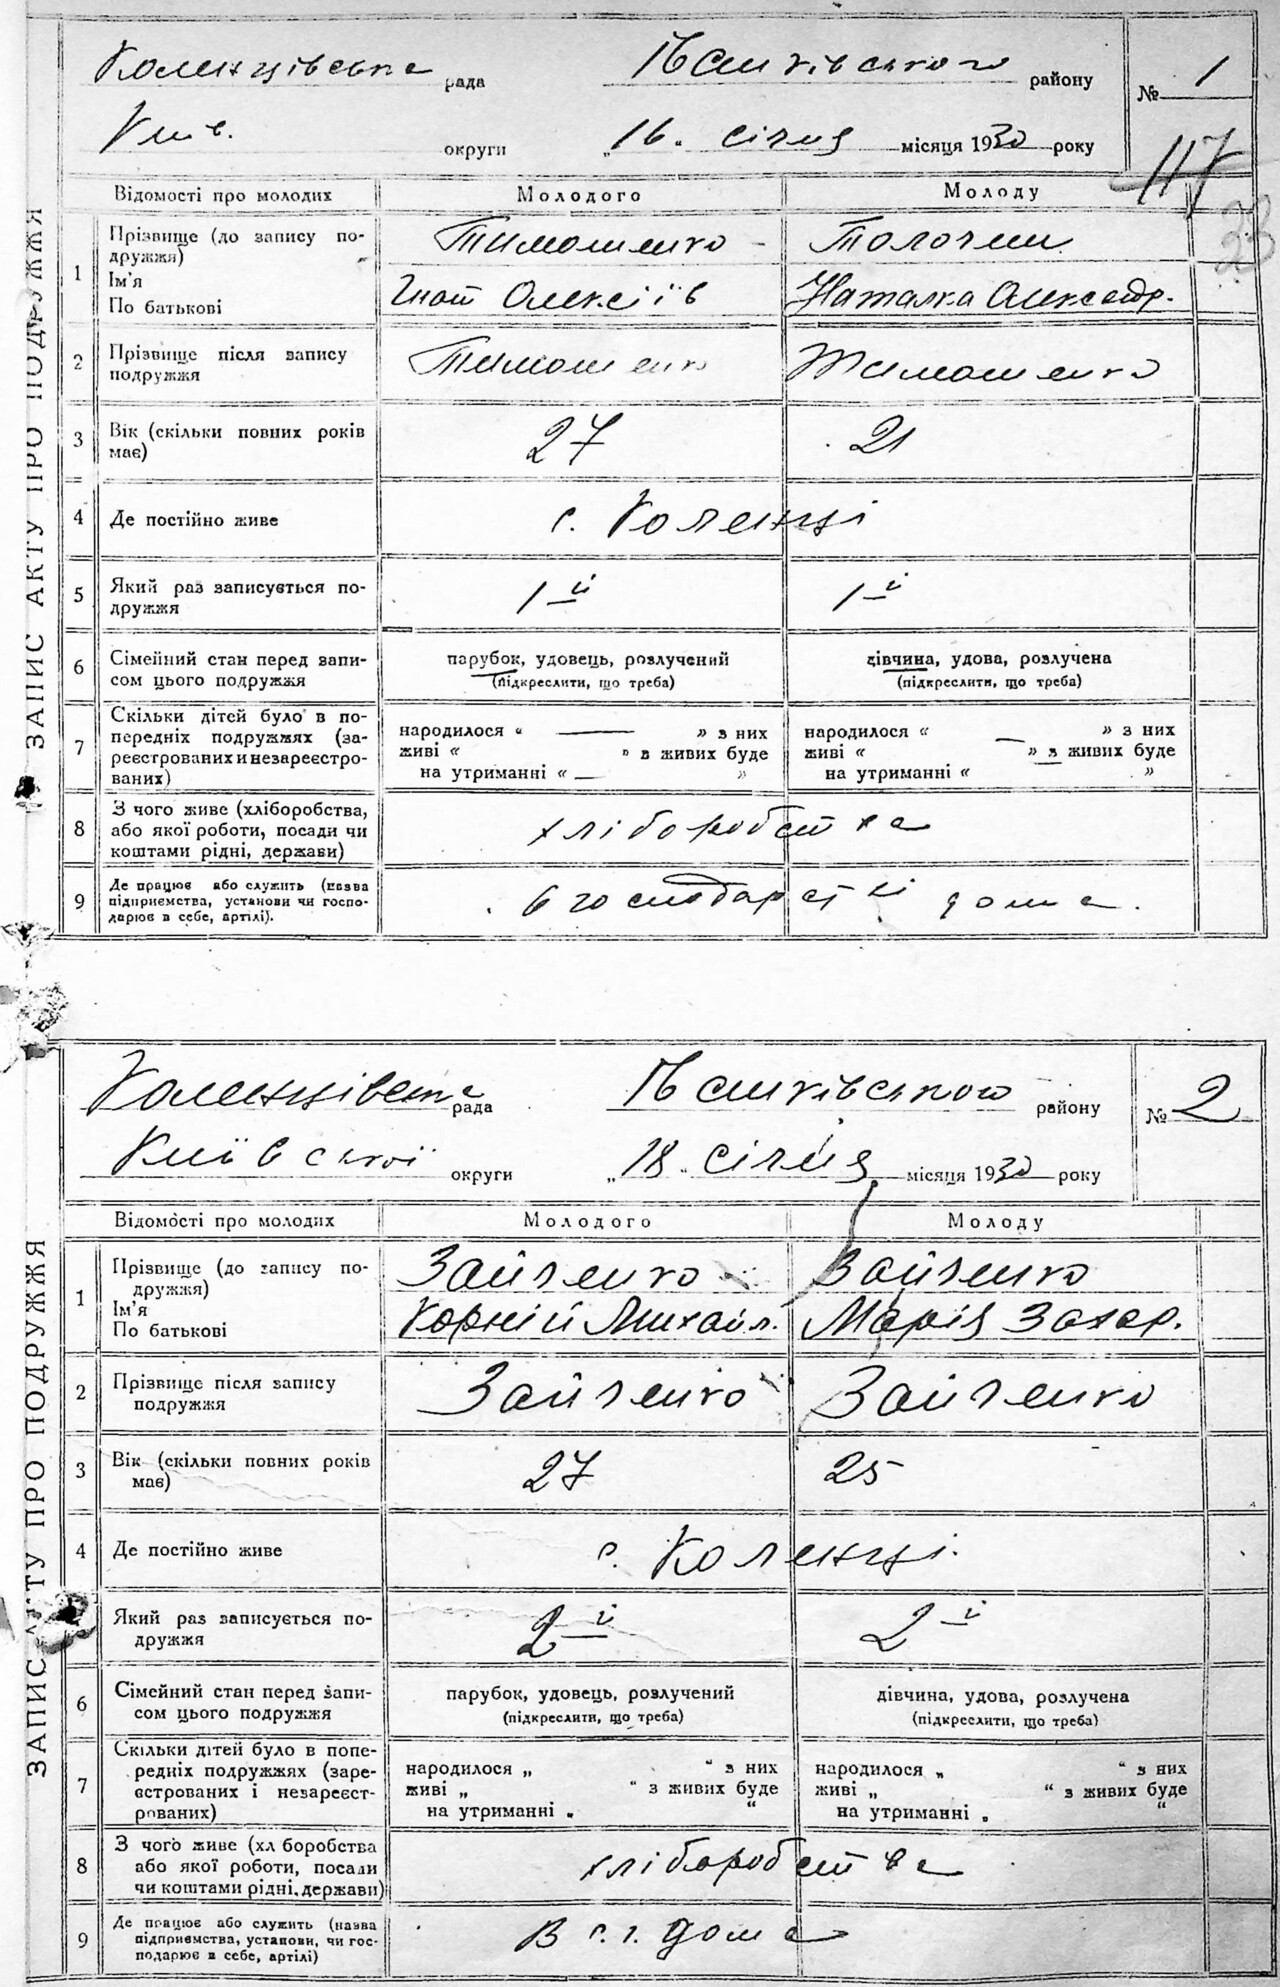 ЗАПИС АКТУ ПРО ПОДРУЖЖЯ
Коленцівська рада Іванківського району № 1
Київ. округи „16. січня місяця 1930 року
117
23
Відомості про молодих Молодого Молоду
1 Прізвище (до запису по- Тимошенко Толочин
дружжя)
Ім'я Гнат Олексіїв Наталка Олександр.
По батькові
2 Прізвище після запису Тимошенко Тимошенко
подружжя
3 Вік (скільки повних років 27 21
має)
4 Де постійно живе с. Коленці
5 Який раз записується по- 1-й 1-й
дружжя
6 Сімейний стан перед запи- парубок, удовець, розлучений дівчина, удова, розлучена
сом цього подружжя (підкреслити, що треба) (підкреслити, що треба)
7 Скільки дітей було в по- народилося “ — ” з них народилося “ — ” з них
передніх подружжях (за- живі “ ” з живих буде живі “ ” з живих буде
реєстрованих и незареєстро- на утриманні “ — ” на утриманні “ ”
ваних)
8 З чого живе (хліборобства, хліборобства
або якої роботи, посади чи
коштами рідні, держави)
9 Де працює або служить (назва в господарстві дома.
підприємства, установи чи госпо-
дарює в себе, артілі).
ЗАПИС АКТУ ПРО ПОДРУЖЖЯ
Коленцівська рада Іванківського району № 2
Київської округи „18. січня місяця 1930 року
Відомості про молодих Молодого Молоду
1 Прізвище (до запису по- Зайченко Зайченко
дружжя)
Ім'я Корній Михайл. Марія Захар.
По батькові
2 Прізвище після запису Зайченко Зайченко
подружжя
3 Вік (скільки повних років 27 25
має)
4 Де постійно живе с. Коленці.
Який раз записується по- 2-й 2-й
дружжя
6 Сімейний стан перед запи- парубок, удовець, розлучений дівчина, удова, розлучена
сом цього подружжя (підкреслити, що треба) (підкреслити, що треба)
7 Скільки дітей було в попе- народилося „ “ з них народилося „ “ з них
редніх подружжях (заре- живі „ “ з живих буде живі „ “ з живих буде
єстрованих і незареєст- на утриманні „ “ на утриманні „ “
рованих)
8 З чого живе (хл боробства хліборобства
або якої роботи, посади
чи коштами рідні, держави)
9 Де працює або служить (назва В с. г. дома
підприємства, установи, чи гос-
подарює в себе, артілі)